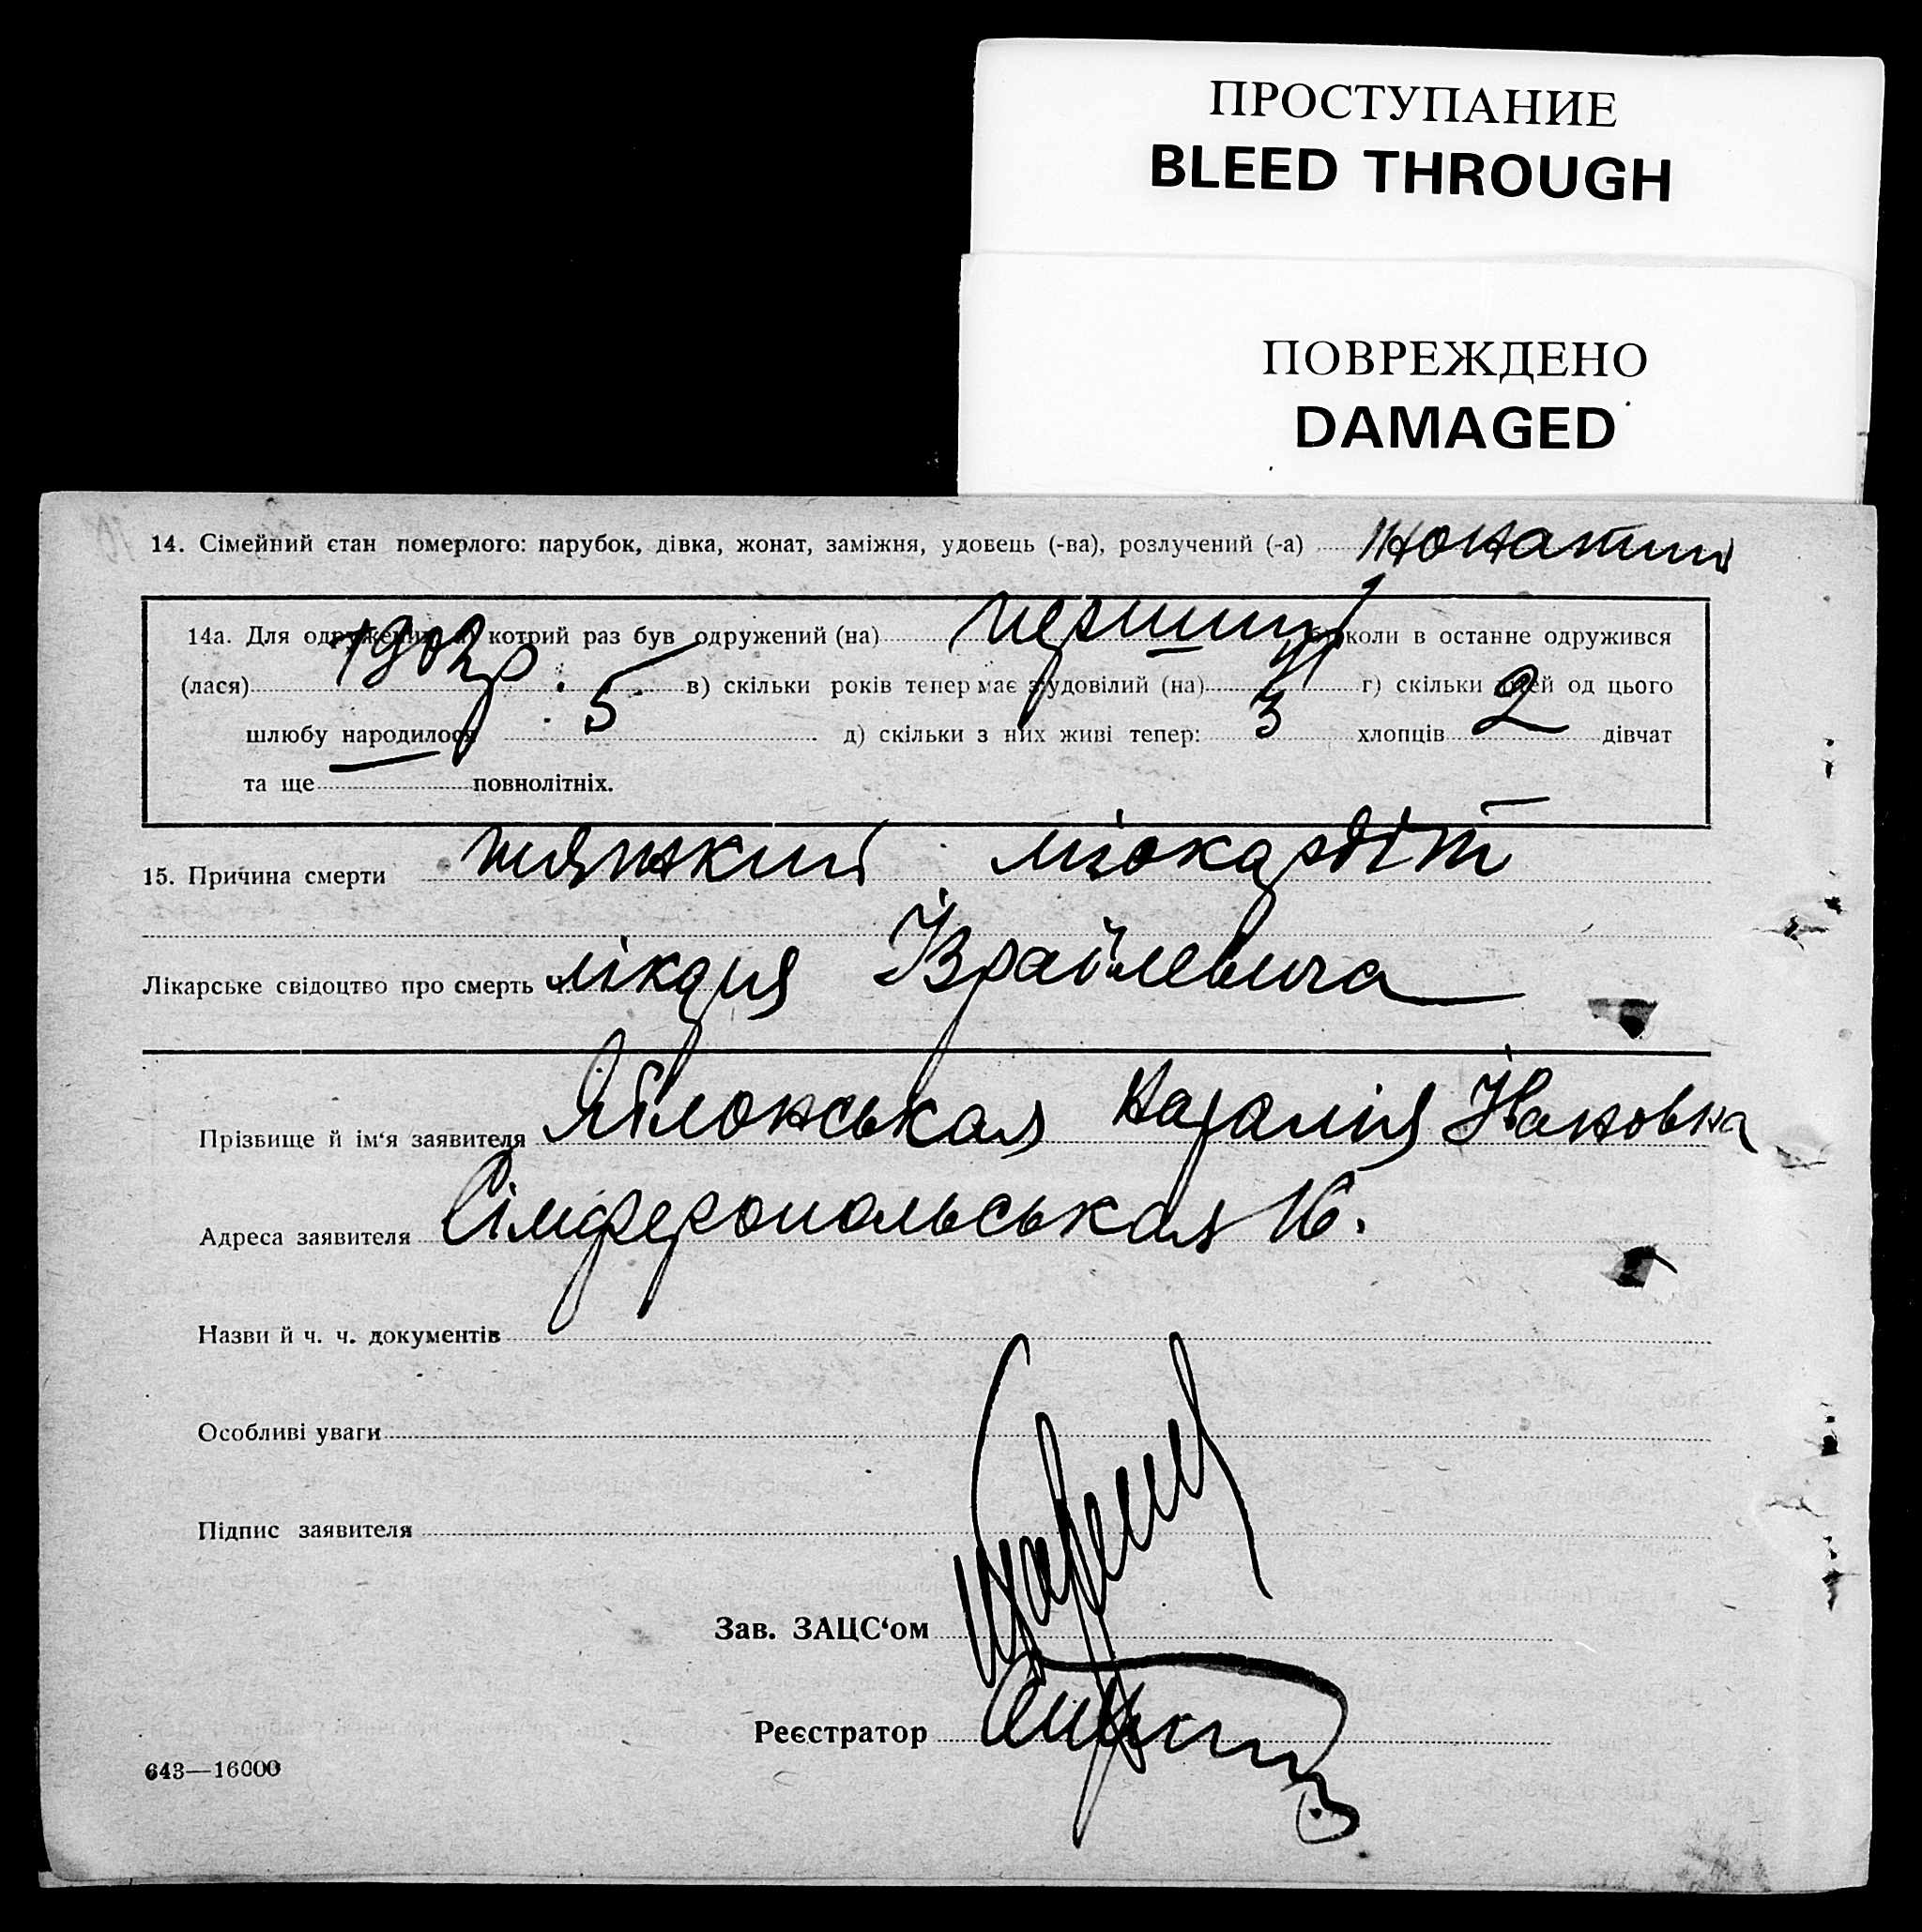 ПРОСТУПАНИЕ
BLEED THROUGH
ПОВРЕЖДЕНО
DAMAGED
14. Сімейний стан померлого: парубок, дівка, жонат, заміжня, удовець (-ва), розлучений (-а) жонатий
14а. Для одружених а) котрий раз був одружений (на) перший б) коли в останнє одружився
(лася) 1902р. в) скільки років тепер має з'удовілий (на) г) скільки дітей од цього
шлюбу народилося 5 д) скільки з них живі тепер: 3 хлопців 2 дівчат
та ще — повнолітніх.
15. Причина смерти тяжкий міокардіт
Лікарське свідоцтво про смерть ч. лікаря
Прізвище й ім‘я заявителя Яблонськая Наталія Івановна
Адреса заявителя Сімферопольськая 16.
Назви й ч. ч. документів
Особливі уваги
Підпис заявителя
Зав. ЗАЦС‘ом
Реєстратор
643—16000